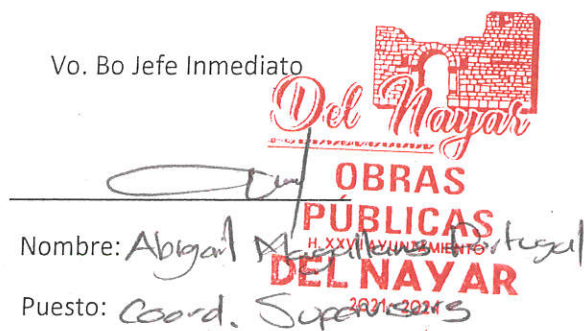 Vo. Bo Jefe Inmediato
Del Nayar
OBRAS
PÚBLICAS
H. XXVII AYUNTAMIENTO
DEL NAYAR
2021-2024
Nombre: Abigail Magallanes Portugal
Puesto: Coord. Supervisors